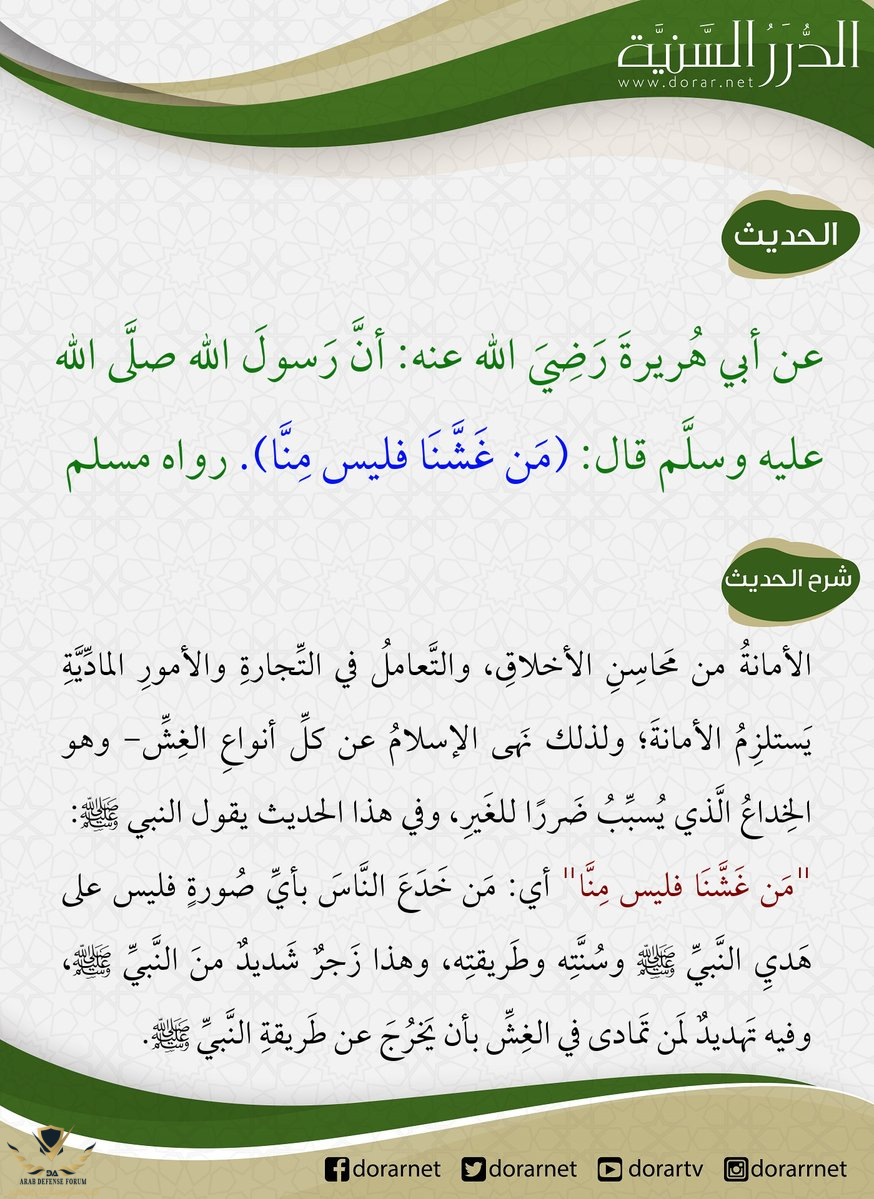 الدُّرَرُ السَّنيَّة
www.dorar.net
الحديث
عن أبي هُريرةَ رَضِيَ الله عنه: أنَّ رَسولَ الله صلَّى الله
عليه وسلَّم قال: (مَن غَشَّنَا فليس مِنَّا). رواه مسلم
شرح الحديث
الأمانةُ من مَحَاسِنِ الأخلاقِ، والتَّعاملُ في التِّجارةِ والأمورِ المادِّيَّةِ
يَستلزِمُ الأمانةَ؛ ولذلك نَهى الإسلامُ عن كلِّ أنواعِ الغِشِّ- وهو
الخِداعُ الَّذي يُسبِّبُ ضَررًا للغَيرِ، وفي هذا الحديث يقول النبي ﷺ:
"مَن غَشَّنَا فليس مِنَّا" أي: مَن خَدَعَ النَّاسَ بأيِّ صُورةٍ فليس على
هَديِ النَّبيِّ ﷺ وسُنَّتِه وطَريقتِه، وهذا زَجرٌ شَديدٌ منَ النَّبيِّ ﷺ،
وفيه تَهديدٌ لمَن تَمادى في الغِشِّ بأن يَخرُجَ عن طَريقةِ النَّبيِّ ﷺ.
DA
ARAB DEFENSE FORUM
dorarnet dorarnet dorartv dorarrnet